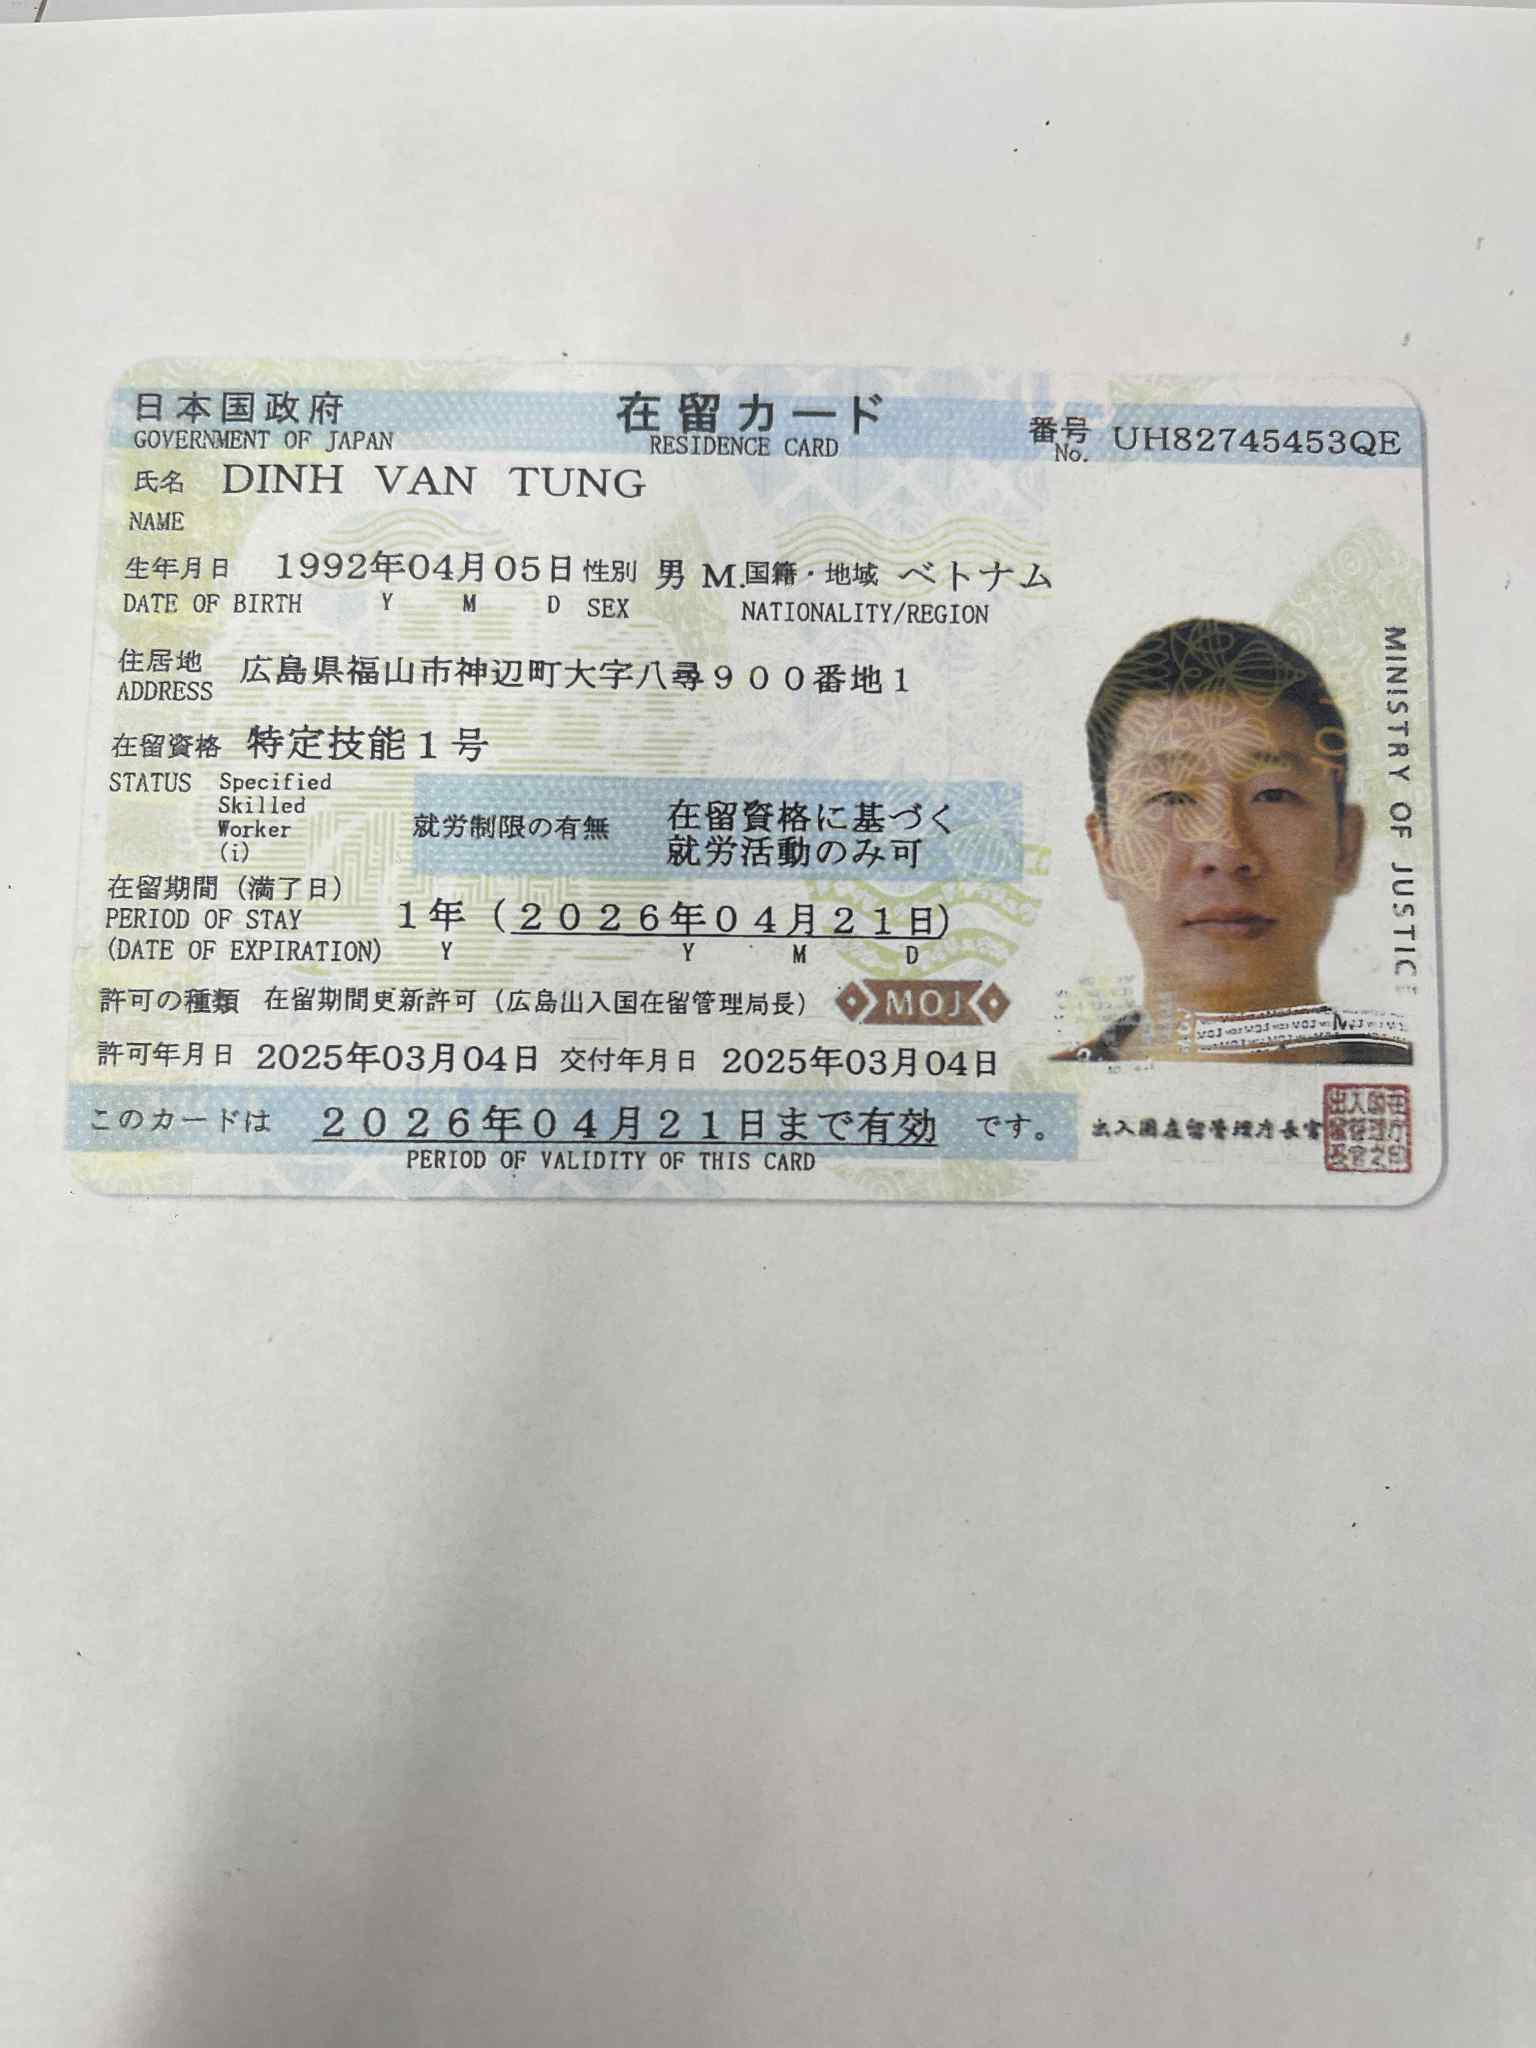 日本国政府 在留カード 番号 UH82745453QE
GOVERNMENT OF JAPAN RESIDENCE CARD No.
氏名 DINH VAN TUNG
NAME
生年月日 1992年04月05日 性別 男 M. 国籍・地域 ベトナム
DATE OF BIRTH Y M D SEX NATIONALITY/REGION
住居地 広島県福山市神辺町大字八尋900番地1
ADDRESS
在留資格 特定技能1号
STATUS Specified
Skilled
Worker
(i)
就労制限の有無 在留資格に基づく
就労活動のみ可
在留期間(満了日)
PERIOD OF STAY 1年(2026年04月21日)
(DATE OF EXPIRATION) Y Y M D
許可の種類 在留期間更新許可(広島出入国在留管理局長)
MOJ
許可年月日 2025年03月04日 交付年月日 2025年03月04日
このカードは 2026年04月21日まで有効 です。
PERIOD OF VALIDITY OF THIS CARD
出入国在留管理庁長官
MINISTRY OF JUSTICE